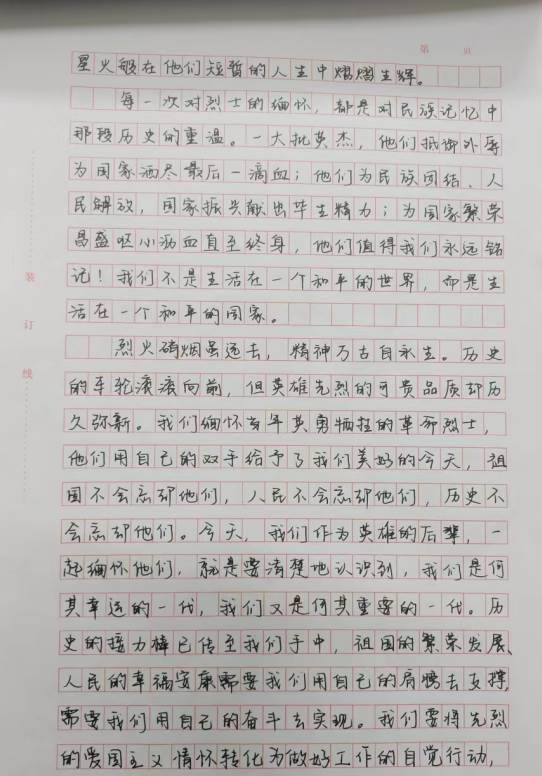 第 页
星火般在他们短暂的人生中熠熠生辉。
每一次对烈士的缅怀，都是对民族记忆中
那段历史的重温。一大批英杰，他们抵御外辱
为国家洒尽最后一滴血；他们为民族团结、人
民解放，国家振兴献出毕生精力；为国家繁荣
昌盛呕心沥血直至终身，他们值得我们永远铭
记！我们不是生活在一个和平的世界，而是生
活在一个和平的国家。
烈火硝烟虽远去，精神万古自永生。历史
的车轮滚滚向前，但英雄先烈的可贵品质却历
久弥新。我们缅怀当年英勇牺牲的革命烈士，
他们用自己的双手给予了我们美好的今天，祖
国不会忘却他们，人民不会忘却他们，历史不
会忘却他们。今天，我们作为英雄的后辈，一
起缅怀他们，就是要清楚地认识到，我们是何
其幸运的一代，我们又是何其重要的一代。历
史的接力棒已传至我们手中，祖国的繁荣发展、
人民的幸福安康需要我们用自己的肩膀去支撑，
需要我们用自己的奋斗去实现。我们要将先烈
的爱国主义情怀转化为做好工作的自觉行动，
装
订
线